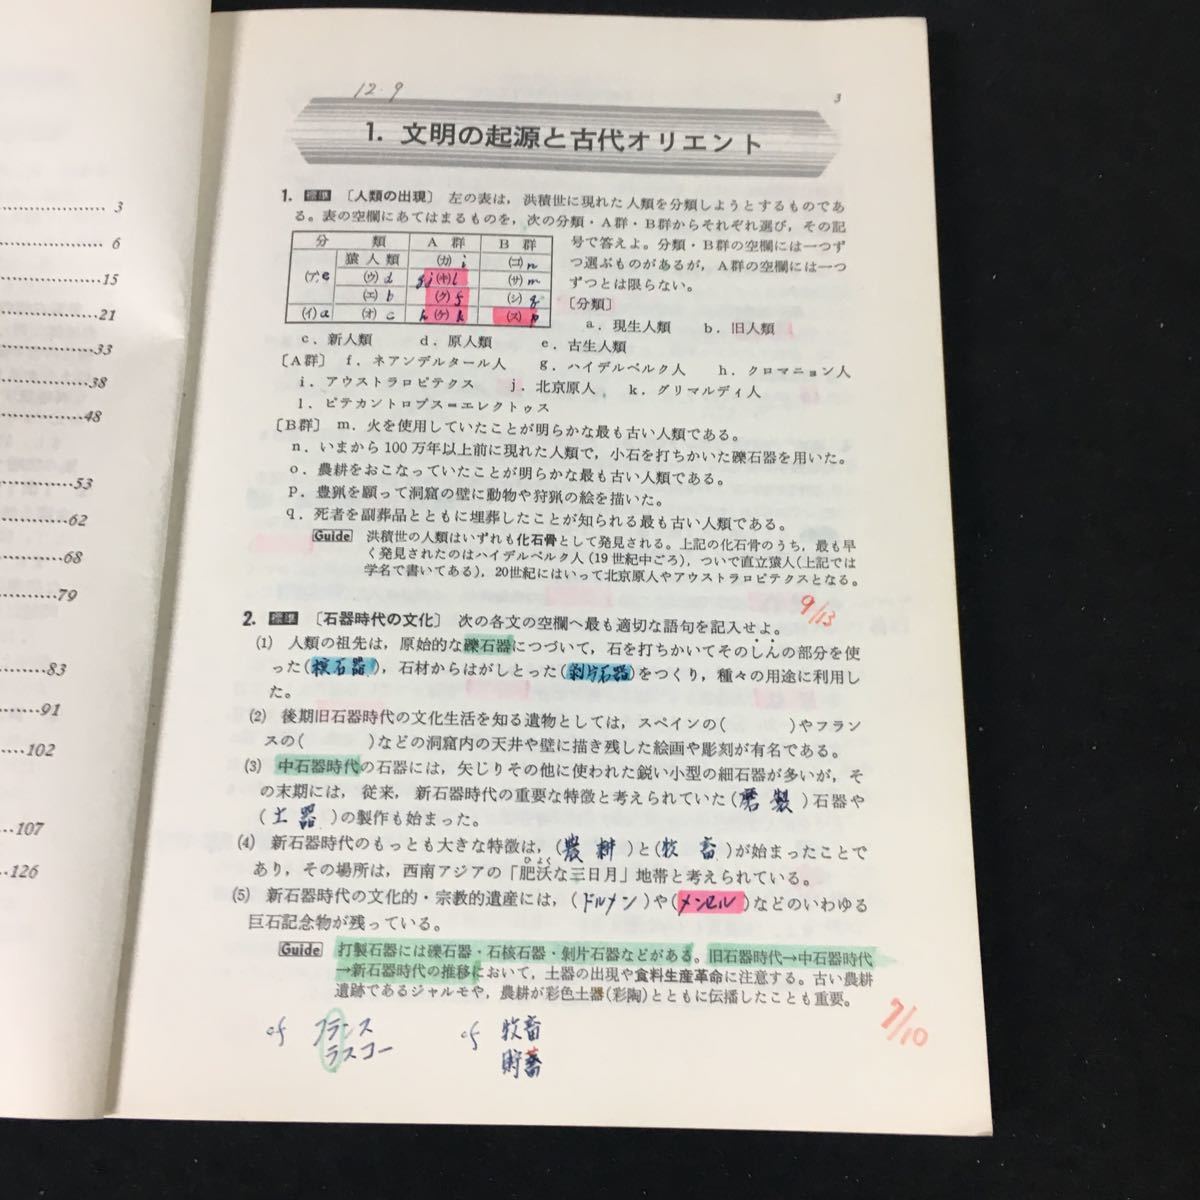 12.9
3
1. 文明の起源と古代オリエント
1. 標準 〔人類の出現〕 左の表は，洪積世に現れた人類を分類しようとするものであ
る。表の空欄にあてはまるものを，次の分類・A群・B群からそれぞれ選び，その記
号で答えよ。分類・B群の空欄には一つず
つ選ぶものがあるが，A群の空欄には一つ
ずつとは限らない。
分 類 A 群 B 群
(ア)e 猿人類 (カ) i (コ) n
(ウ) d gj(キ) l (サ) m
(エ) b (ク) f (シ) q
(イ)a (オ) c h(ケ) k (ス) p
〔分類〕
a．現生人類 b．旧人類
c．新人類 d．原人類 e．古生人類
〔A群〕 f．ネアンデルタール人 g．ハイデルベルク人 h．クロマニョン人
i．アウストラロピテクス j．北京原人 k．グリマルディ人
l．ピテカントロプス＝エレクトゥス
〔B群〕 m．火を使用していたことが明らかな最も古い人類である。
n．いまから100万年以上前に現れた人類で，小石を打ちかいた礫石器を用いた。
o．農耕をおこなっていたことが明らかな最も古い人類である。
p．豊猟を願って洞窟の壁に動物や狩猟の絵を描いた。
q．死者を副葬品とともに埋葬したことが知られる最も古い人類である。
Guide 洪積世の人類はいずれも化石骨として発見される。上記の化石骨のうち，最も早
く発見されたのはハイデルベルク人(19世紀中ごろ)，ついで直立猿人(上記では
学名で書いてある)，20世紀にはいって北京原人やアウストラロピテクスとなる。
9/13
2. 標準 〔石器時代の文化〕 次の各文の空欄へ最も適切な語句を記入せよ。
(1) 人類の祖先は，原始的な礫石器につづいて，石を打ちかいてそのしんの部分を使
った(核石器)，石材からはがしとった(剝片石器)をつくり，種々の用途に利用し
た。
(2) 後期旧石器時代の文化生活を知る遺物としては，スペインの( )やフラン
スの( )などの洞窟内の天井や壁に描き残した絵画や彫刻が有名である。
(3) 中石器時代の石器には，矢じりその他に使われた鋭い小型の細石器が多いが，そ
の末期には，従来，新石器時代の重要な特徴と考えられていた(磨製)石器や
(土器)の製作も始まった。
(4) 新石器時代のもっとも大きな特徴は，(農耕)と(牧畜)が始まったことで
あり，その場所は，西南アジアの「肥沃な三日月」地帯と考えられている。
ひよく
(5) 新石器時代の文化的・宗教的遺産には，(ドルメン)や(メンヒル)などのいわゆる
巨石記念物が残っている。
Guide 打製石器には礫石器・石核石器・剝片石器などがある。旧石器時代→中石器時代
→新石器時代の推移において，土器の出現や食料生産革命に注意する。古い農耕
遺跡であるジャルモや，農耕が彩色土器(彩陶)とともに伝播したことも重要。
7/10
cf フランス
ラスコー
cf 牧畜
貯蓄
3
6
15
21
33
38
48
53
62
68
79
83
91
102
107
126